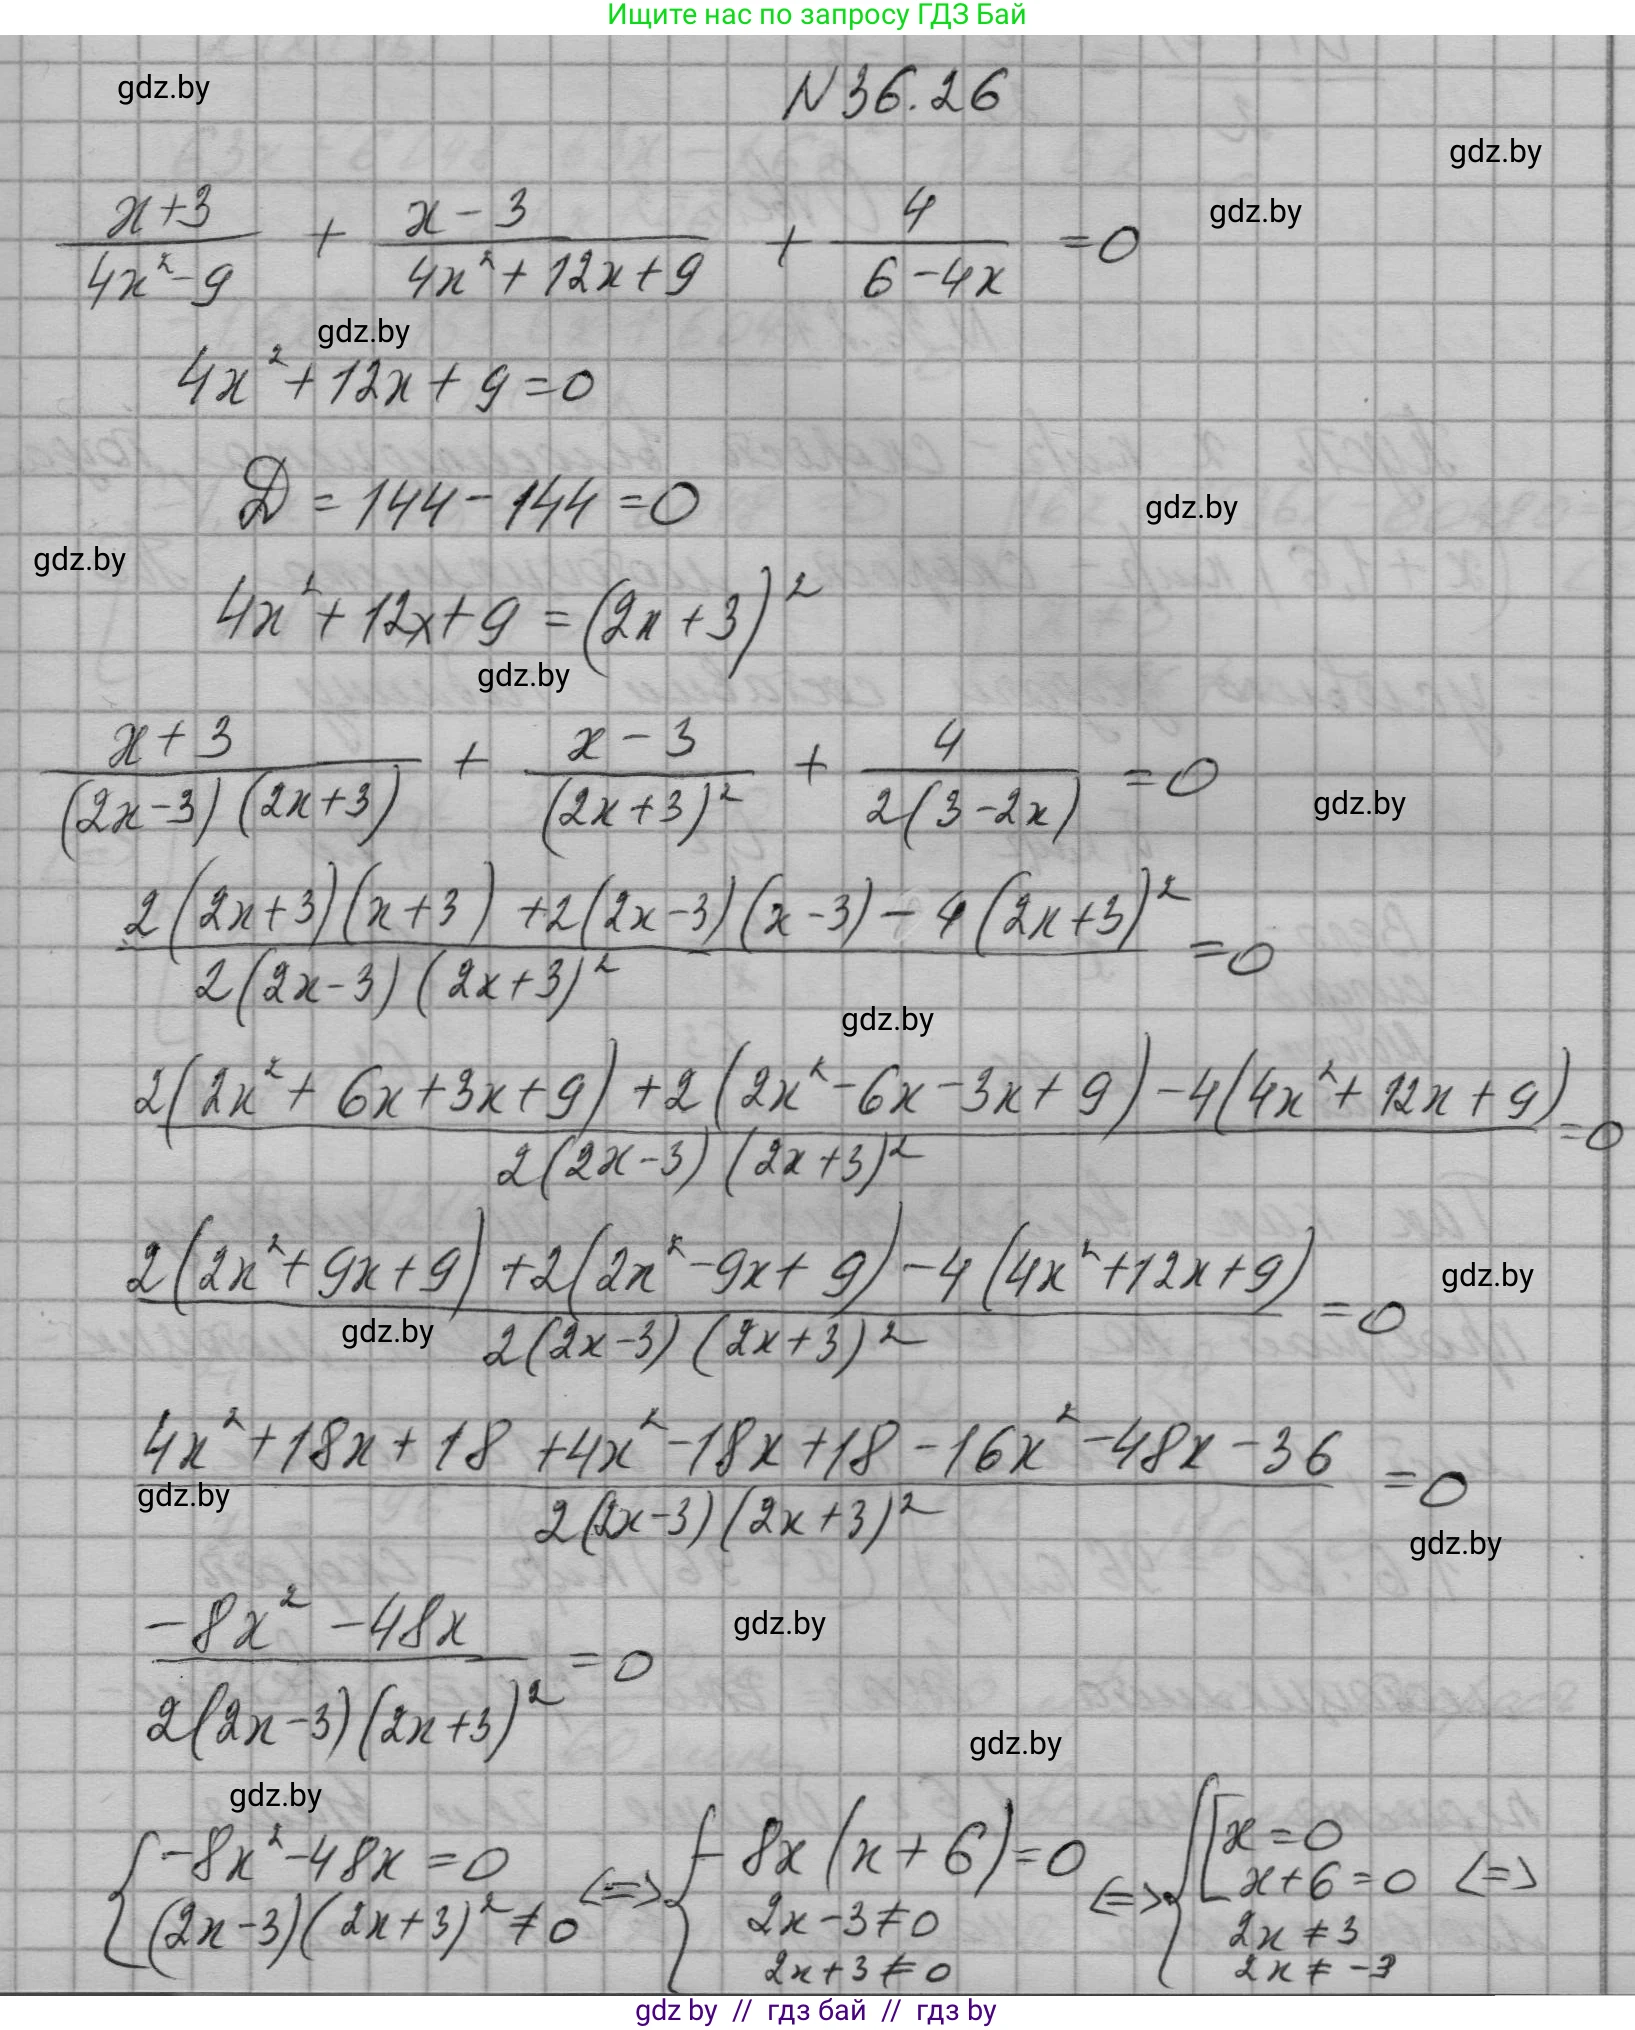 Ищите нас по запросу ГДЗ Бай
gdz.by
N 36.26
gdz.by
gdz.by
(x+3)/(4x²-9) + (x-3)/(4x²+12x+9) + 4/(6-4x) =0
gdz.by
4x²+12x+9=0
D = 144-144=0
gdz.by
gdz.by
4x²+12x+9=(2x+3)²
gdz.by
(x+3)/((2x-3)(2x+3)) + (x-3)/((2x+3)²) + 4/(2(3-2x)) =0
gdz.by
(2(2x+3)(x+3)+2(2x-3)(x-3)-4(2x+3)²)/(2(2x-3)(2x+3)²) =0
gdz.by
(2(2x²+6x+3x+9)+2(2x²-6x-3x+9)-4(4x²+12x+9))/(2(2x-3)(2x+3)²) =0
(2(2x²+9x+9)+2(2x²-9x+9)-4(4x²+12x+9))/(2(2x-3)(2x+3)²) =0
gdz.by
gdz.by
(4x²+18x+18+4x²-18x+18-16x²-48x-36)/(2(2x-3)(2x+3)²) =0
gdz.by
gdz.by
(-8x²-48x)/(2(2x-3)(2x+3)²) =0
gdz.by
gdz.by
gdz.by
{ -8x²-48x=0 <=> { -8x(x+6)=0 <=> { [ x=0
(2x-3)(2x+3)²≠0 2x-3≠0 x+6=0 <=>
2x+3≠0 2x≠3
2x≠-3
gdz by // гдз бай // гдз by